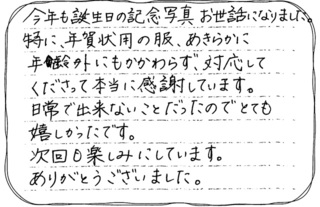 今年も誕生日の記念写真お世話になりました。
特に、年賀状用の服、あきらかに
年齢外にもかかわらず、対応して
くださって本当に感謝しています。
日常で出来ないことだったのでとても
嬉しかったです。
次回も楽しみにしています。
ありがとうございました。